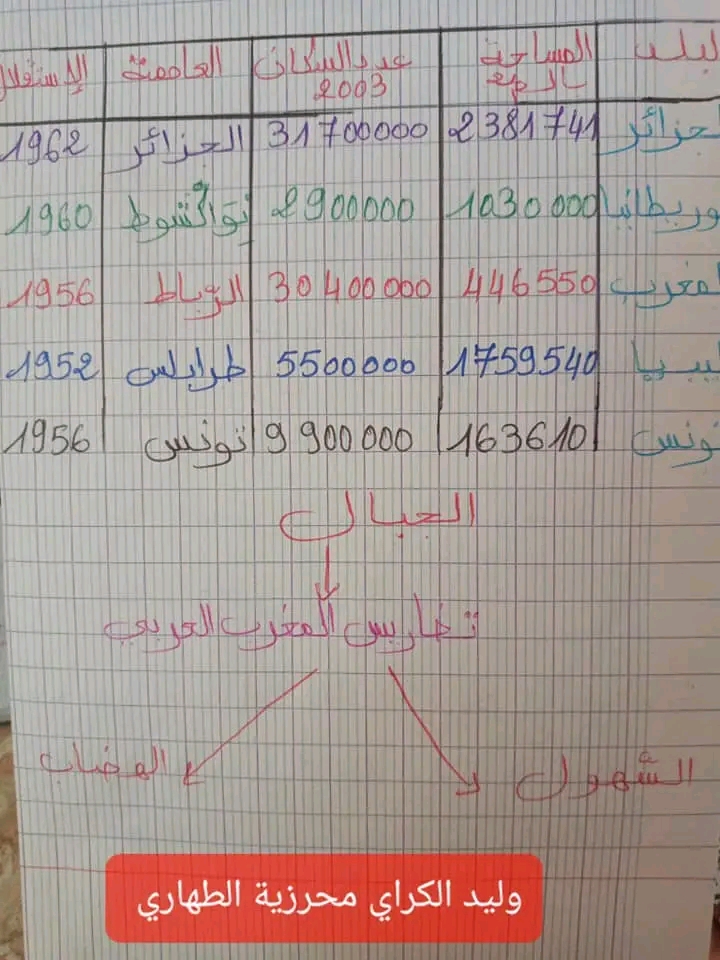 لبلد المساحة بالكم² عدد السكان 2003 العاصمة الإستقلال
جزائر 2381741 31700000 الجزائر 1962
وريطانيا 1030000 2900000 نواكشوط 1960
لمغرب 446550 30400000 الرباط 1956
ليبيا 1759540 5500000 طرابلس 1952
تونس 163610 9900000 تونس 1956
الجبال
تضاريس المغرب العربي
السّهول الهضاب
وليد الكراي محرزية الطهاري